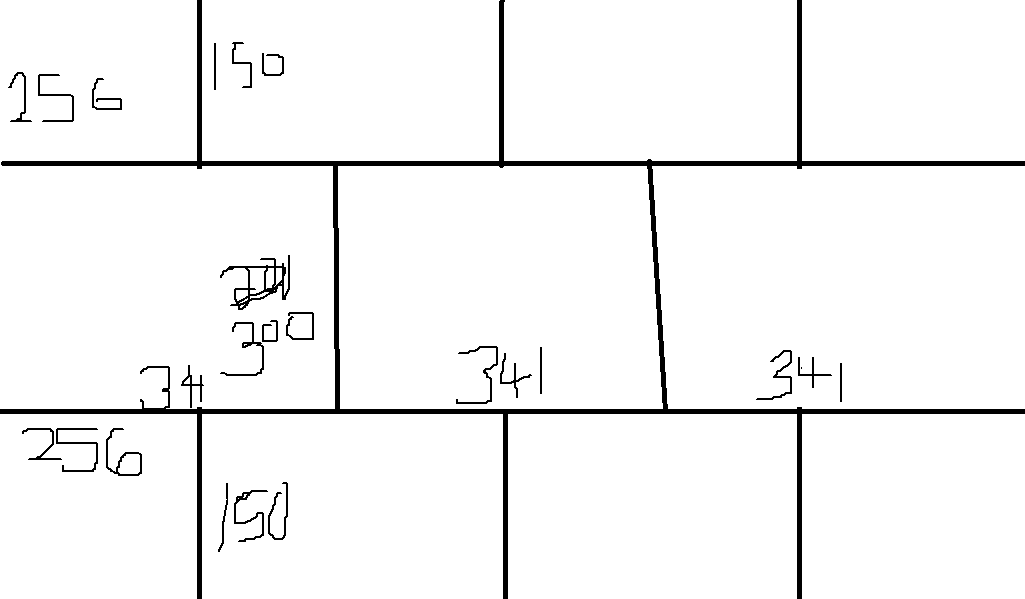 156 150
300
341 341 341
256
150